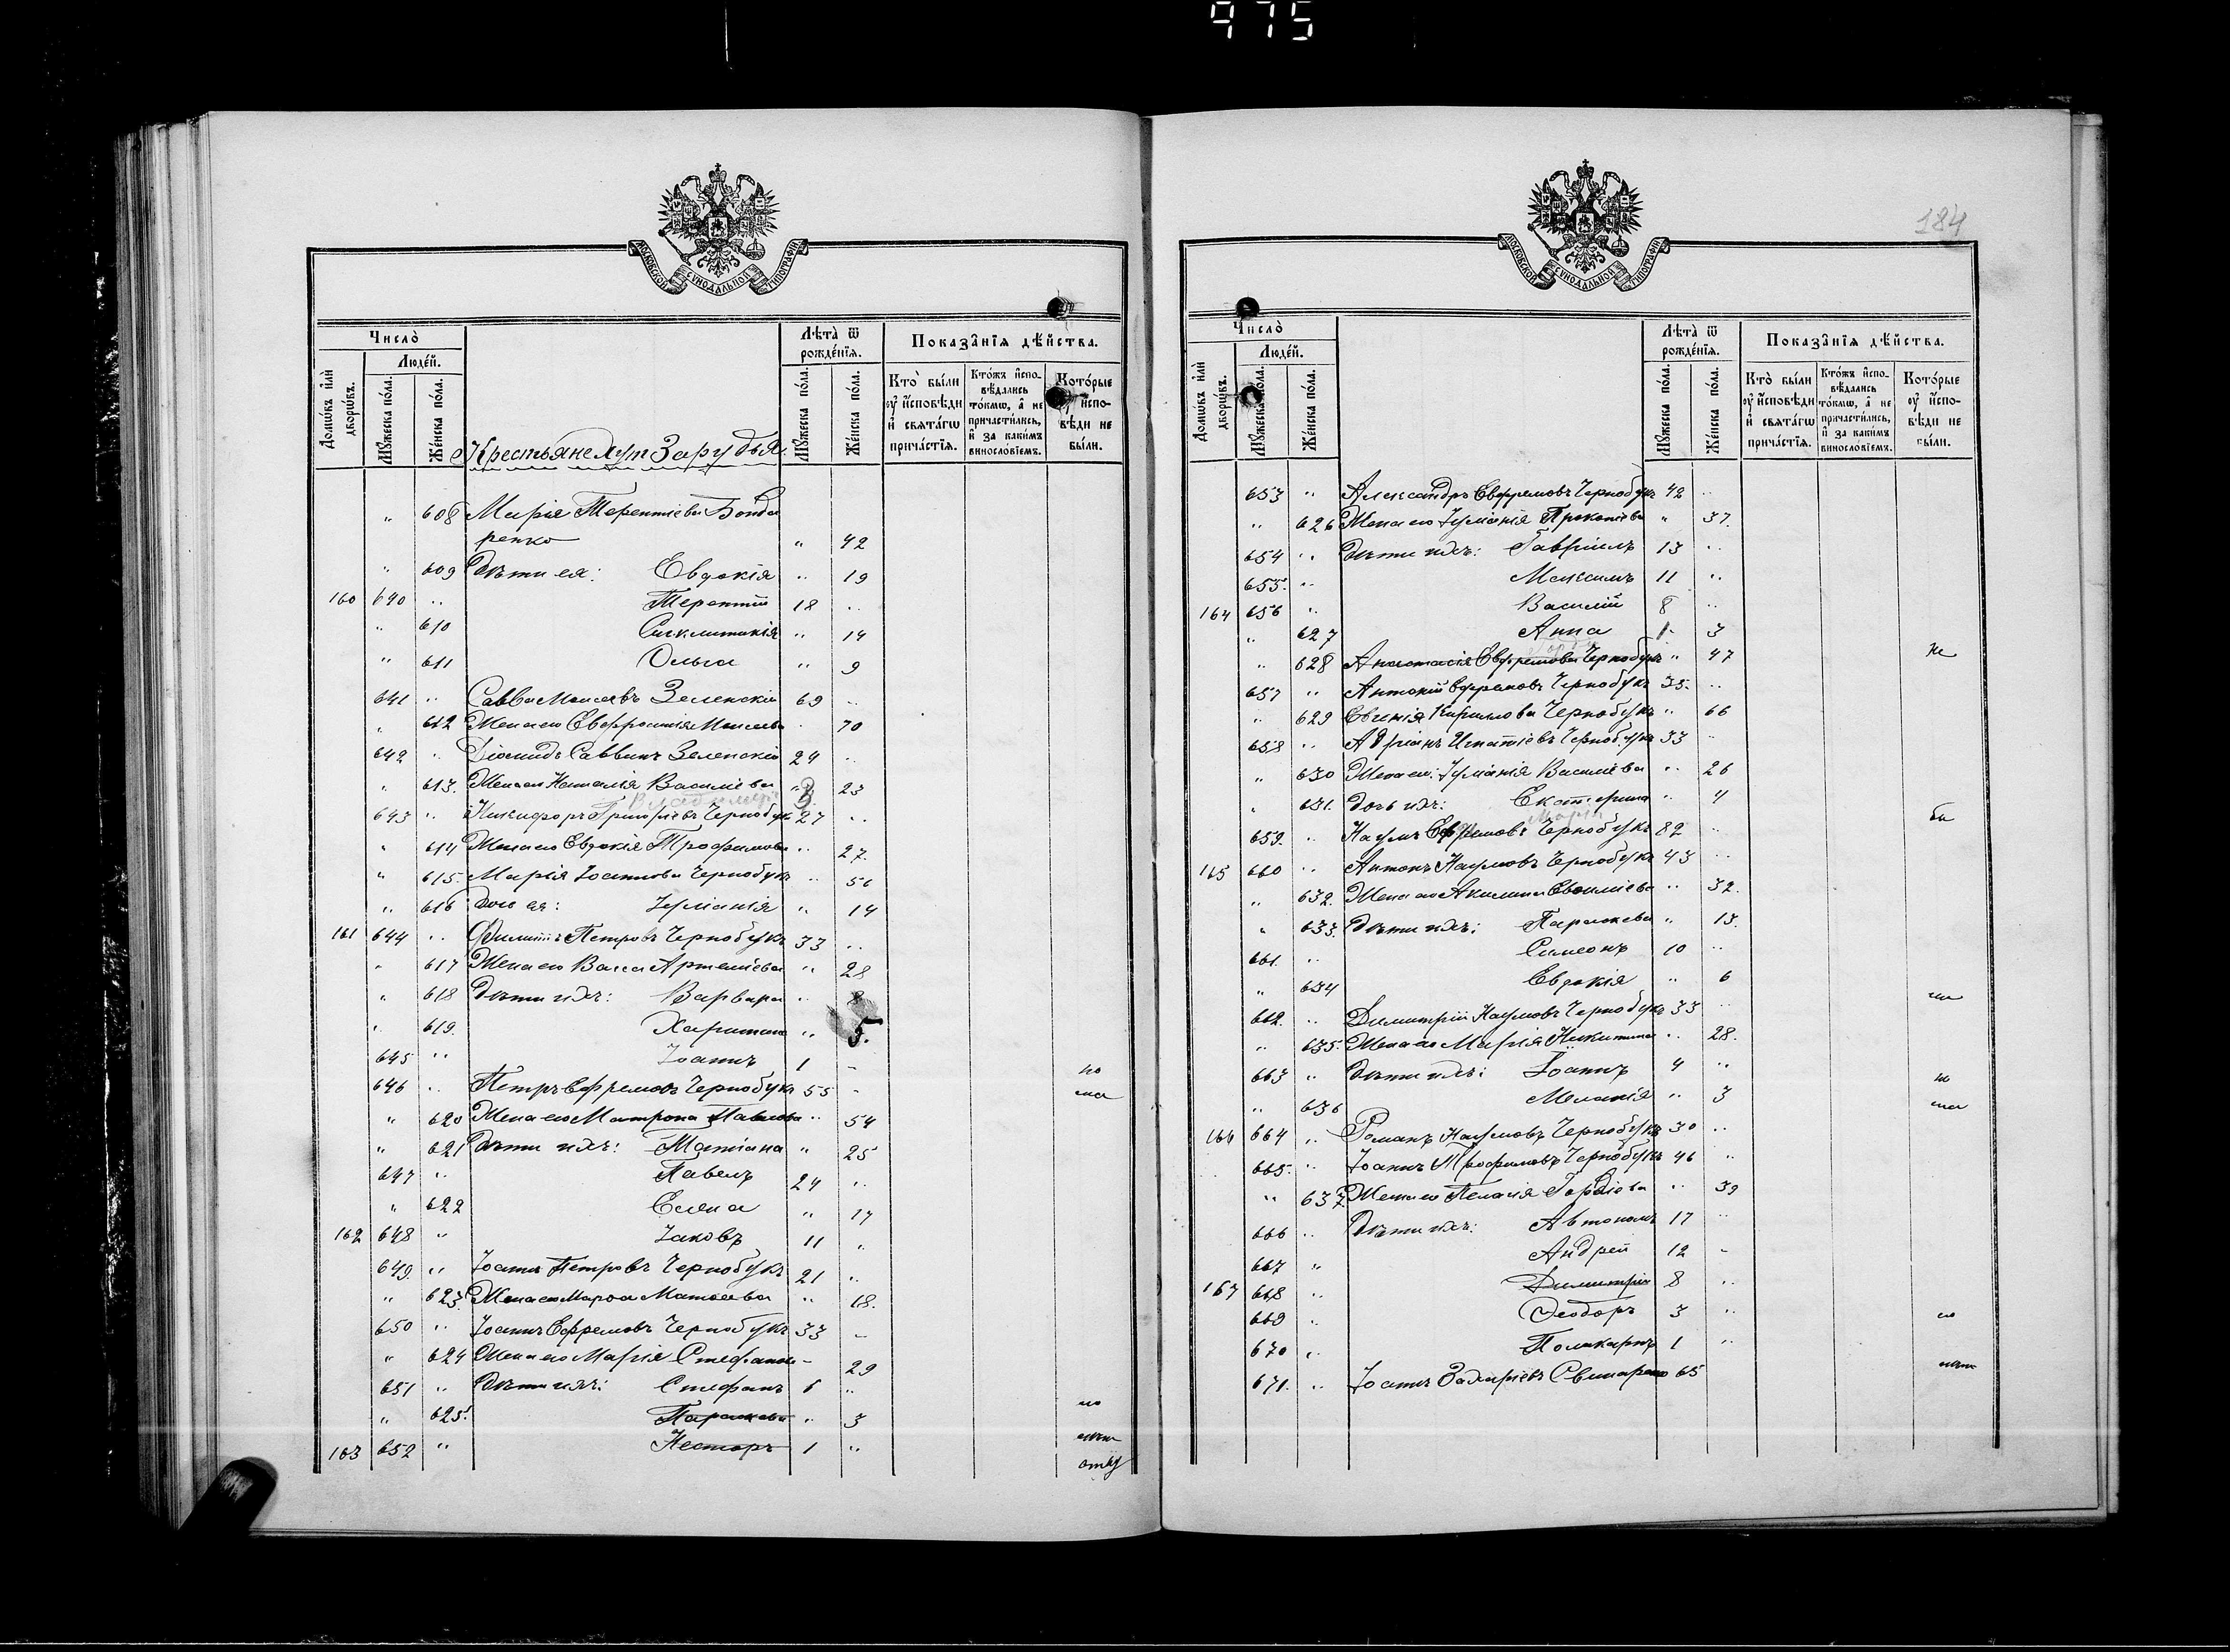 975
184
МОСКОВСКОЙ СѴНОДАЛЬНОЙ ТИПОГРАФІИ
Число̀
Люде́й.
Домѡ́въ и҆лѝ дворѡ́въ.
Мꙋ́жеска по́ла.
Же́нска по́ла.
Крестьяне Хут Зарудья.
Лѣ́та ѿ рожде́нїя.
Мꙋ́жеска по́ла.
Же́нска по́ла.
Показа̑нїя дѣ́йства.
Кто̀ бы́ли оу҆ и҆сповѣ́ди и҆ свѧта́гѡ прича́стїѧ.
Кто́жъ и҆спо-вѣ́дались то́кмѡ, а҆ не причасти́лись, и҆ за каки́мъ винослові́емъ.
Кото́рые оу҆ и҆спо-вѣ́ди не бы́ли.
„ 608 Марія Терентіева Бонда
ренко „ 42
„ 609 Дѣти ея: Евдокія „ 19
160 640 „ Терентій 18 „
„ 610 Синклитикія „ 14
„ 611 Ольга „ 9
641 „ Савва Моисеевъ Зеленскій 69 „
„ 612 Жена его Евфросинія Моисеева 70
642 „ Діомидъ Саввинъ Зеленскій 24 „
„ 613. Жена его Наталія Василіева „ 23
Владимиръ 3
643 „ Никифоръ Григоріевъ Чернобукъ 27 „
„ 614 Жена его Евдокія Трофимова „ 27.
„ 615. Марія Іоаннова Чернобукъ „ 56
„ 616 Дочь ея: Іуліанія „ 14
161 644 „ Филиппъ Петровъ Чернобукъ 33 „
„ 617 Жена его Васса Артеміева „ 28
„ 618 Дѣти ихъ: Варвара „ 8
„ 619. Харитина „ 5.
645 „ Іоаннъ 1 –
646 „ Петръ Ефремовъ Чернобукъ 55 –
„ 620 Жена его Матрона Павлова „ 54
„ 621 Дѣти ихъ: Татіана „ 25
647 „ Павелъ 24 „
„ 622 Елена „ 17
162 648 „ Іаковъ 11 „
649. „ Іоаннъ Петровъ Чернобукъ 21 „
„ 623 Жена его Марѳа Матѳеева „ 18.
650 „ Іоаннъ Ефремовъ Чернобукъ 33 –
„ 624 Жена его Марія Стефанова – 29
651 „ Дѣти ихъ: Стефанъ 6 „
„ 625. Параскева „ 3
163 652 „ Несторъ 1 „
Число̀
Люде́й.
Домѡ́въ и҆лѝ дворѡ́въ.
Мꙋ́жеска по́ла.
Же́нска по́ла.
Лѣ́та ѿ рожде́нїя.
Мꙋ́жеска по́ла.
Же́нска по́ла.
Показа̑нїя дѣ́йства.
Кто̀ бы́ли оу҆ и҆сповѣ́ди и҆ свѧта́гѡ прича́стїѧ.
Кто́жъ и҆спо-вѣ́дались то́кмѡ, а҆ не причасти́лись, и҆ за каки́мъ винослові́емъ.
Кото́рые оу҆ и҆спо-вѣ́ди не бы́ли.
653 „ Александръ Евфремовъ Чернобукъ 42 „
„ 626 Жена его Іуліанія Прокопіева „ 37.
654 „ Дѣти ихъ: Гавріилъ 13 „
655. „ Максимъ 11 „
164 656 „ Василій 8 „
„ 627 Анна 3
„ 628 Анастасія Евфремова Чернобукъ „ 47 не
657 „ Антоній Чернобукъ 35. „
„ 629 Евгенія Кириллова Чернобукъ „ 66
658 „ Адріанъ Игнатіевъ Чернобукъ 33 „
„ 630 Жена его: Іуліанія Василіева „ 26
„ 631. Дочь ихъ: Екатерина „ 4
Марія
659. „ Наумъ Ефремовъ Чернобукъ 82 „
165 660 „ Антонъ Наумовъ Чернобукъ 43 „
„ 632. Жена его Акилина „ 32.
„ 633. Дѣти ихъ: Параскева „ 13.
661. „ Симеонъ 10 „
„ 634 Евдокія „ 6
662. „ Димитрій Наумовъ Чернобукъ 33 „
„ 635. Жена его Марія Никитина „ 28.
663 „ Дѣти ихъ: Іоаннъ 4 „
„ 636 Меланія „ 3
166 664 „ Романъ Наумовъ Чернобукъ 30 „
665. „ Іоаннъ Трофимовъ Чернобукъ 46 „
„ 637 Жена его Пелагія Гордіева „ 39
666 „ Дѣти ихъ: Автономъ 17 „
667 „ Андрей 12 –
167 668 „ Димитрій 8 „
669 „ Ѳеодоръ 3 „
670 „ Поликарпъ 1 „
671. „ Іоаннъ Захаріевъ Свинаренко 65